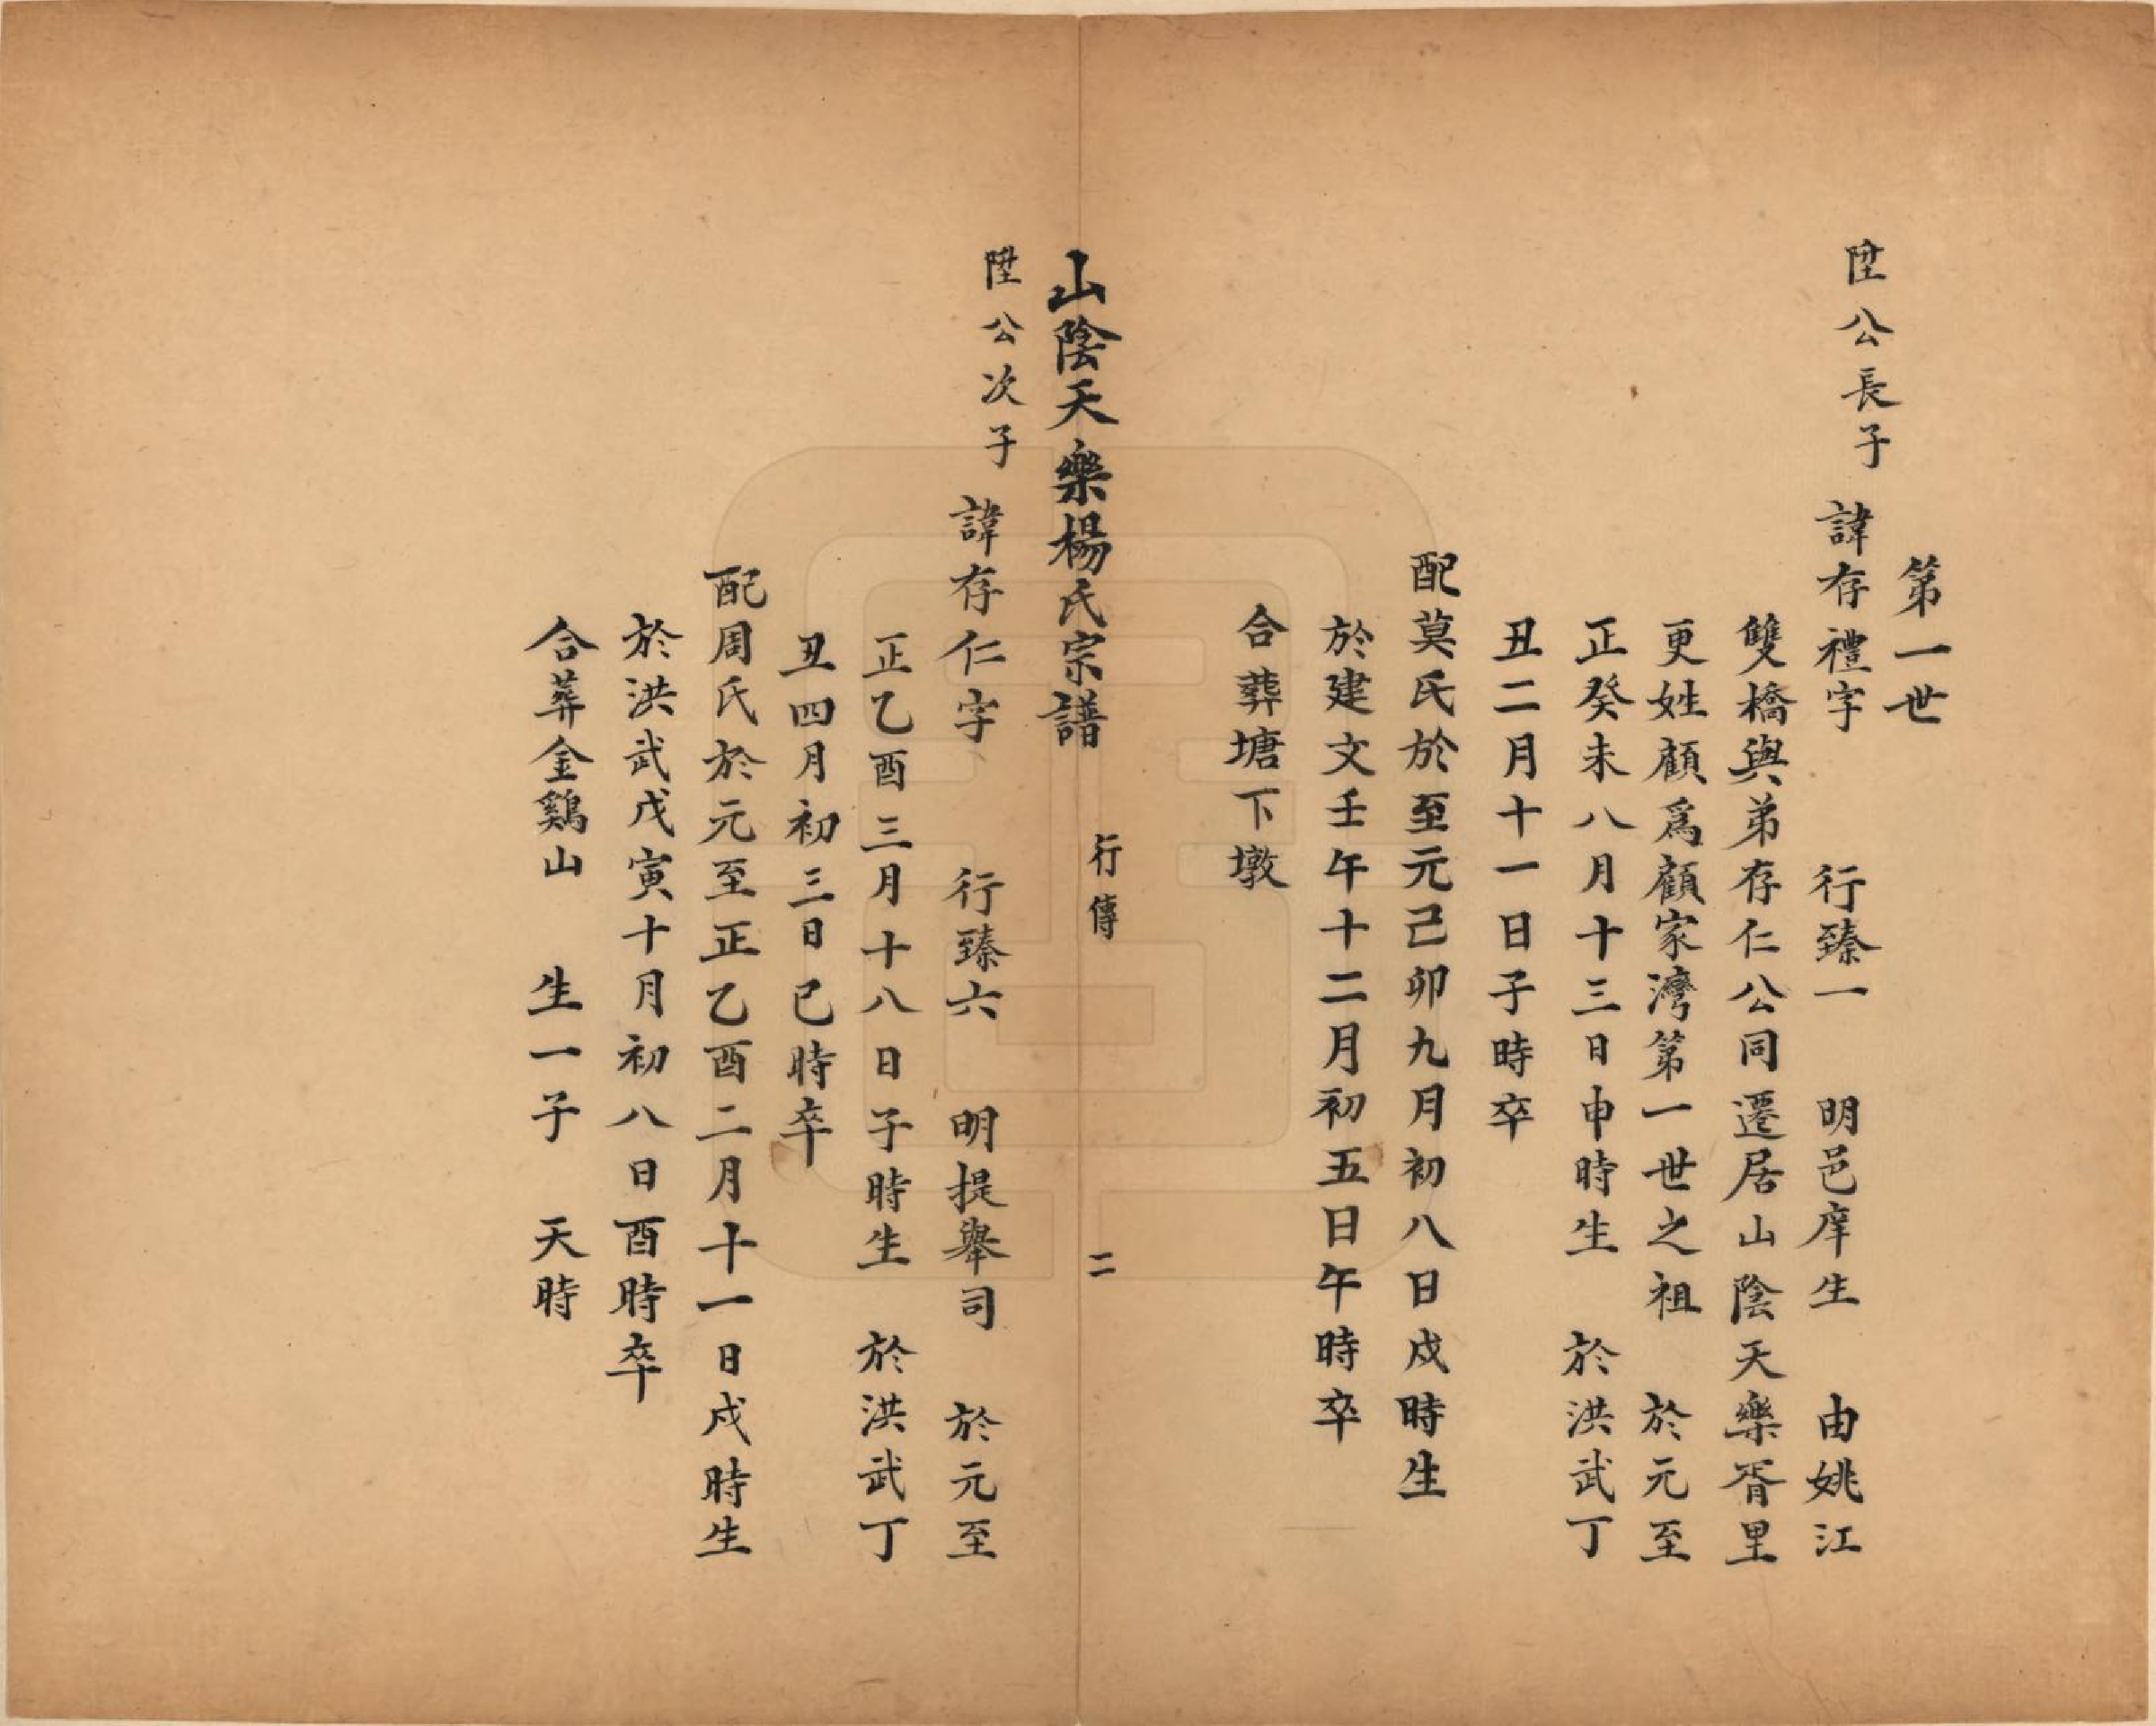 第一世
陞公長子 諱存禮字 行臻一 明邑庠生 由姚江
雙橋與弟存仁公同遷居山陰天樂胥里
更姓顧爲顧家灣第一世之祖 於元至
正癸未八月十三日申時生 於洪武丁
丑二月十一日子時卒
配莫氏於至元己卯九月初八日戍時生
於建文壬午十二月初五日午時卒
合葬塘下墩
山陰天樂楊氏宗譜 行傳 二
陞公次子 諱存仁字 行臻六 明提舉司 於元至
正乙酉三月十八日子時生 於洪武丁
丑四月初三日巳時卒
配周氏於元至正乙酉二月十一日戍時生
於洪武戊寅十月初八日酉時卒
合葬金鷄山 生一子 天時